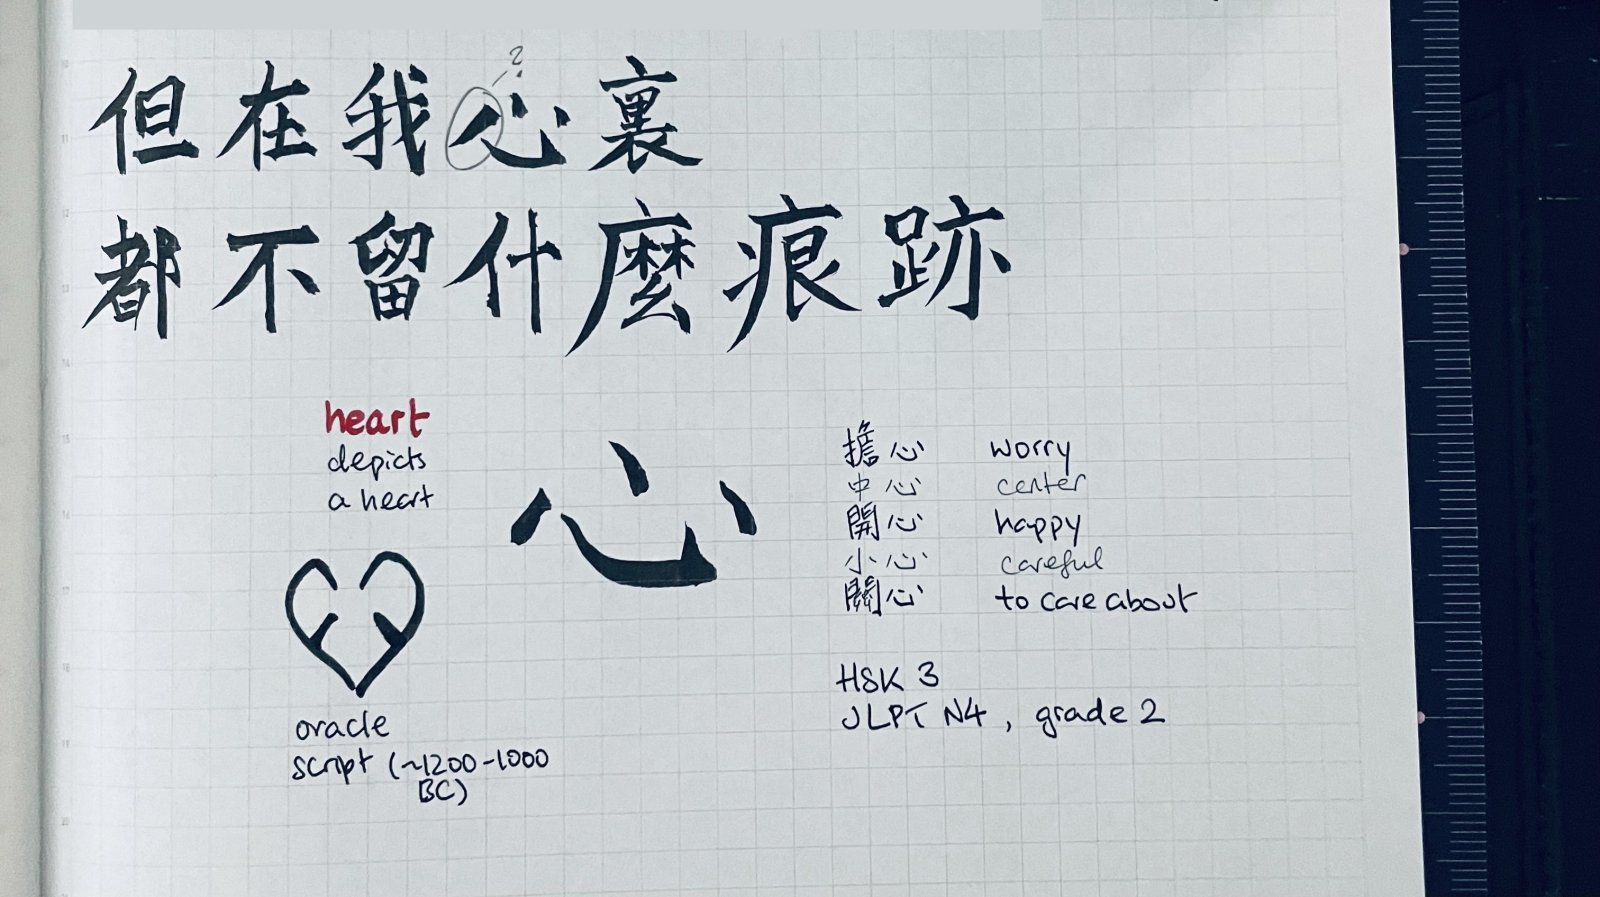 ?
但在我心裏
都不留什麼痕跡
heart
depicts
a heart
心
oracle
script (~1200-1000
BC)
擔心 worry
中心 center
開心 happy
小心 careful
關心 to care about
HSK 3
JLPT N4, grade 2